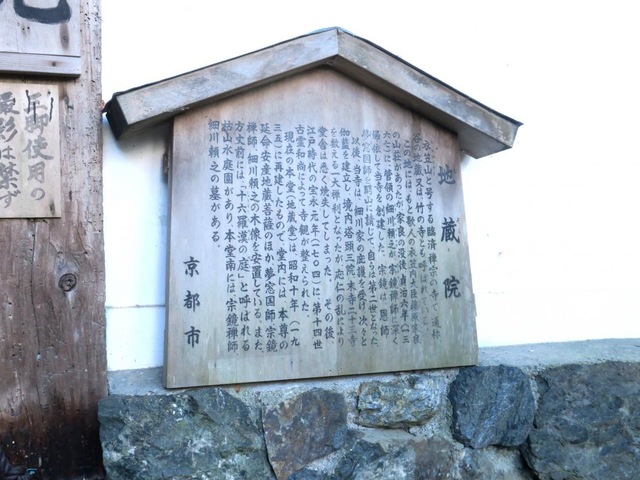 地蔵院
衣笠山と号する臨済禅宗の寺で、通称
谷の地蔵又は竹の寺と呼ばれている。
この地には、もと歌人の衣笠内大臣藤原家良
の山荘があったが、家良の没後、貞治六年(一三
六七)に、管領の細川頼之が、宗鏡禅師に深く
帰依して当寺を創建した。宗鏡は、恩師
夢窓国師を開山に請じて、自らは第二世となった。
以後、当寺は、細川家の庇護を受け、次々と
伽藍を建立し、境内塔頭三院、末寺二十三寺
を数える一大禅刹となったが、応仁の乱により
堂舎は悉く焼失してしまった。その後
江戸時代の宝永元年(一七〇四)に第十四世
古霊和尚によって寺観が整えられた。
現在の本堂(地蔵堂)は、昭和十年(一九
三五)に再建したもので、堂内には、本尊の
延命安産地蔵菩薩のほか夢窓国師、宗鏡
禅師、細川頼之の木像を安置している。また
方丈前には、「十六羅漢の庭」と呼ばれる
枯山水庭園があり、本堂南には、宗鏡禅師
細川頼之の墓がある。
京都市
使用の
影は禁ず